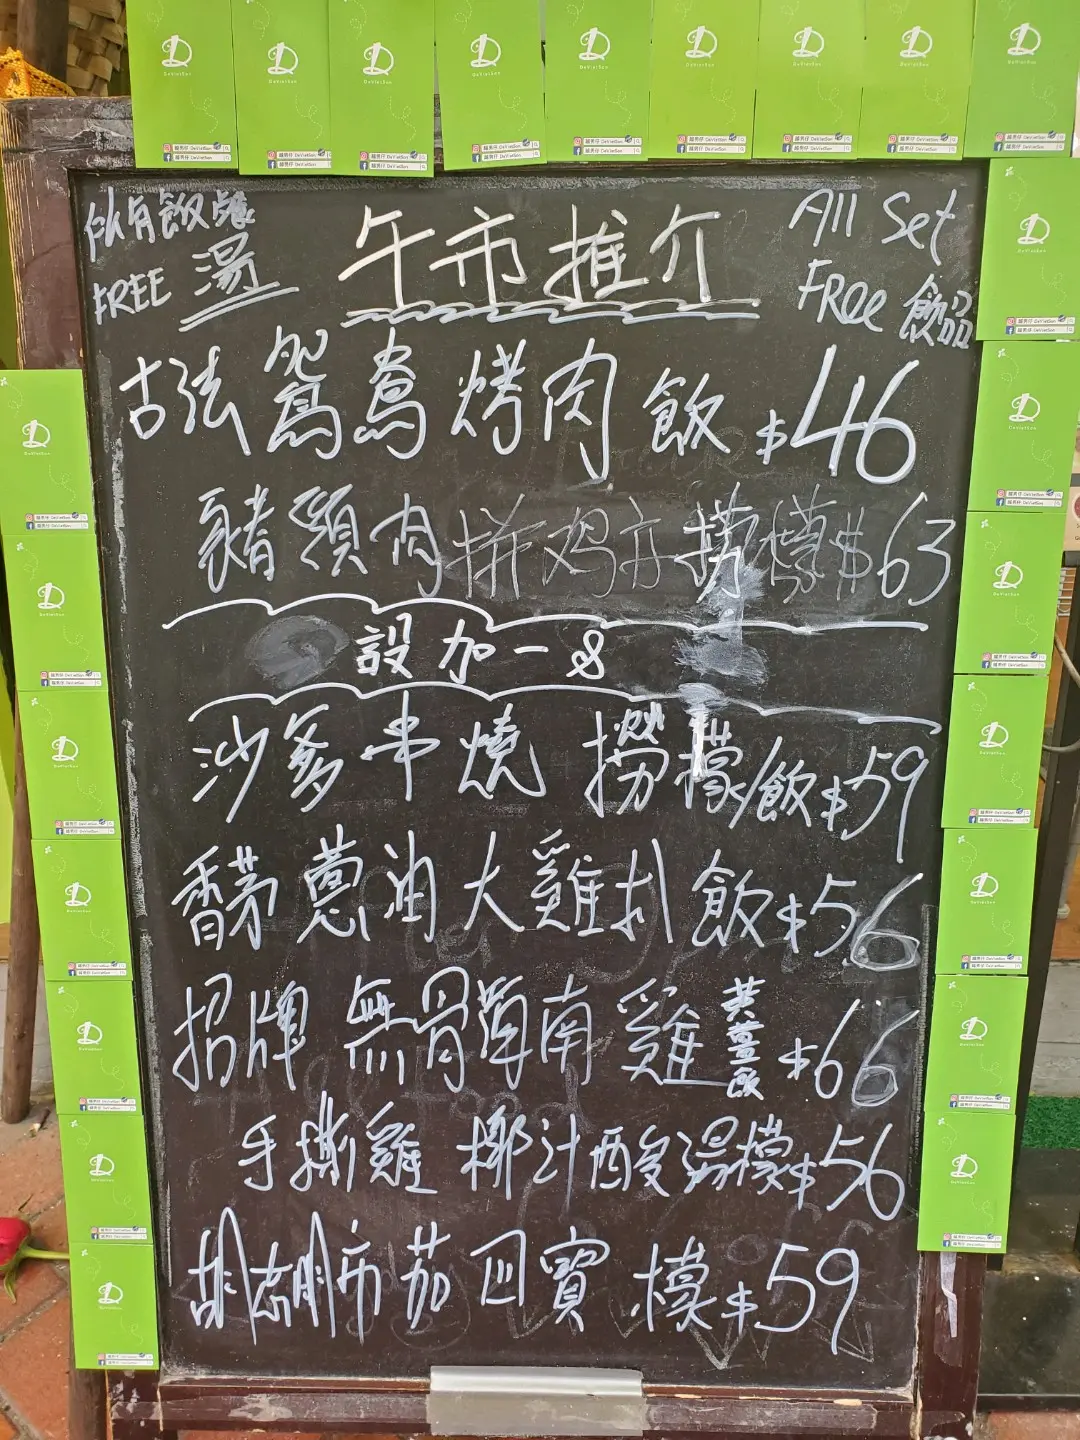 所有飯餐
FREE 湯
午市推介
All Set
FRee 飲品
古法鴛鴦烤肉飯 $46
豬頸肉拼鸡 撈檬 $63
設加一8
沙爹串燒 撈檬/飯 $59
香茅蔥油大雞扒飯 $56
招牌無骨海南雞 黃薑飯 $66
手撕雞 椰汁酸湯檬 $56
番茄 寶 檬 $59
DeVietSen
越男仔 DeVietSen
越男仔 DeVietSen